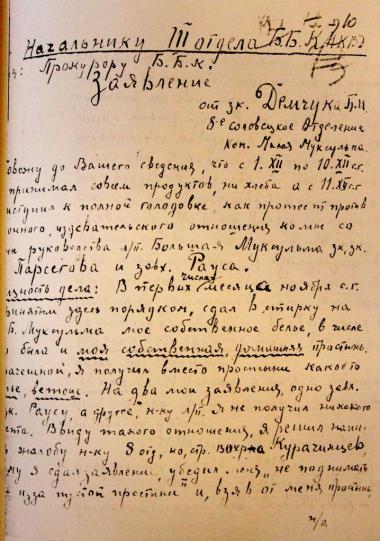 Начальнику III отдела Б.Б.К. НКВД
Прокурору Б.Б.К.
Заявление
от зк. Демчука П.И.
8е соловецкое отделение
Ком. Малая Муксулька.
довожу до Вашего сведения, что с 1.XII по 10.XII с.г.
принимал совсем продуктов, ни хлеба а с 11.XII с.г.
иступил к полной голодовке, как протест против
онного, издевательского отношения ко мне со
руководства л/п. Большая Муксульма зк. зк.
Парсегова и завх. Рауса.
ность дела: В первых числах месяца ноября с.г.
принятым здесь порядком, сдал в стирку на
Б. Муксульма мое собственное белье, в числе
о была и моя собственная, домашняя простынь.
рачешной, я получил вместо простыни какое то
ые, ветош. На два мои заявления, одно завх.
к. Раусу, а другое, н-ку л/п. я не получил никакого
ета. Ввиду такого отношения, я решил напи-
ь жалобу н-ку 8 отд, но, стр. вохра Курачинцев,
му я сдал заявление, убедил меня, "не поднимать
из за пустой простыни" и, взяв от меня простынь,
н/о.